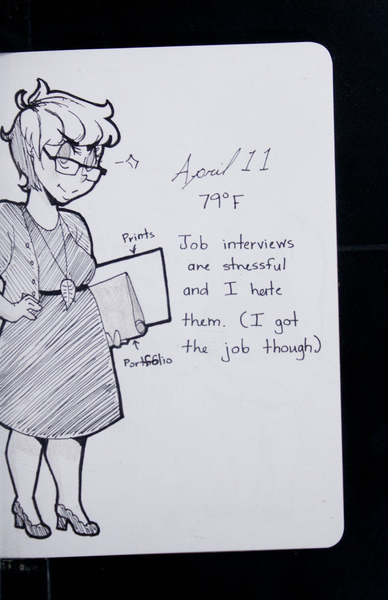 April 11
79°F
Prints
Job interviews
are stressful
and I hate
them. (I got
the job though)
Portfolio